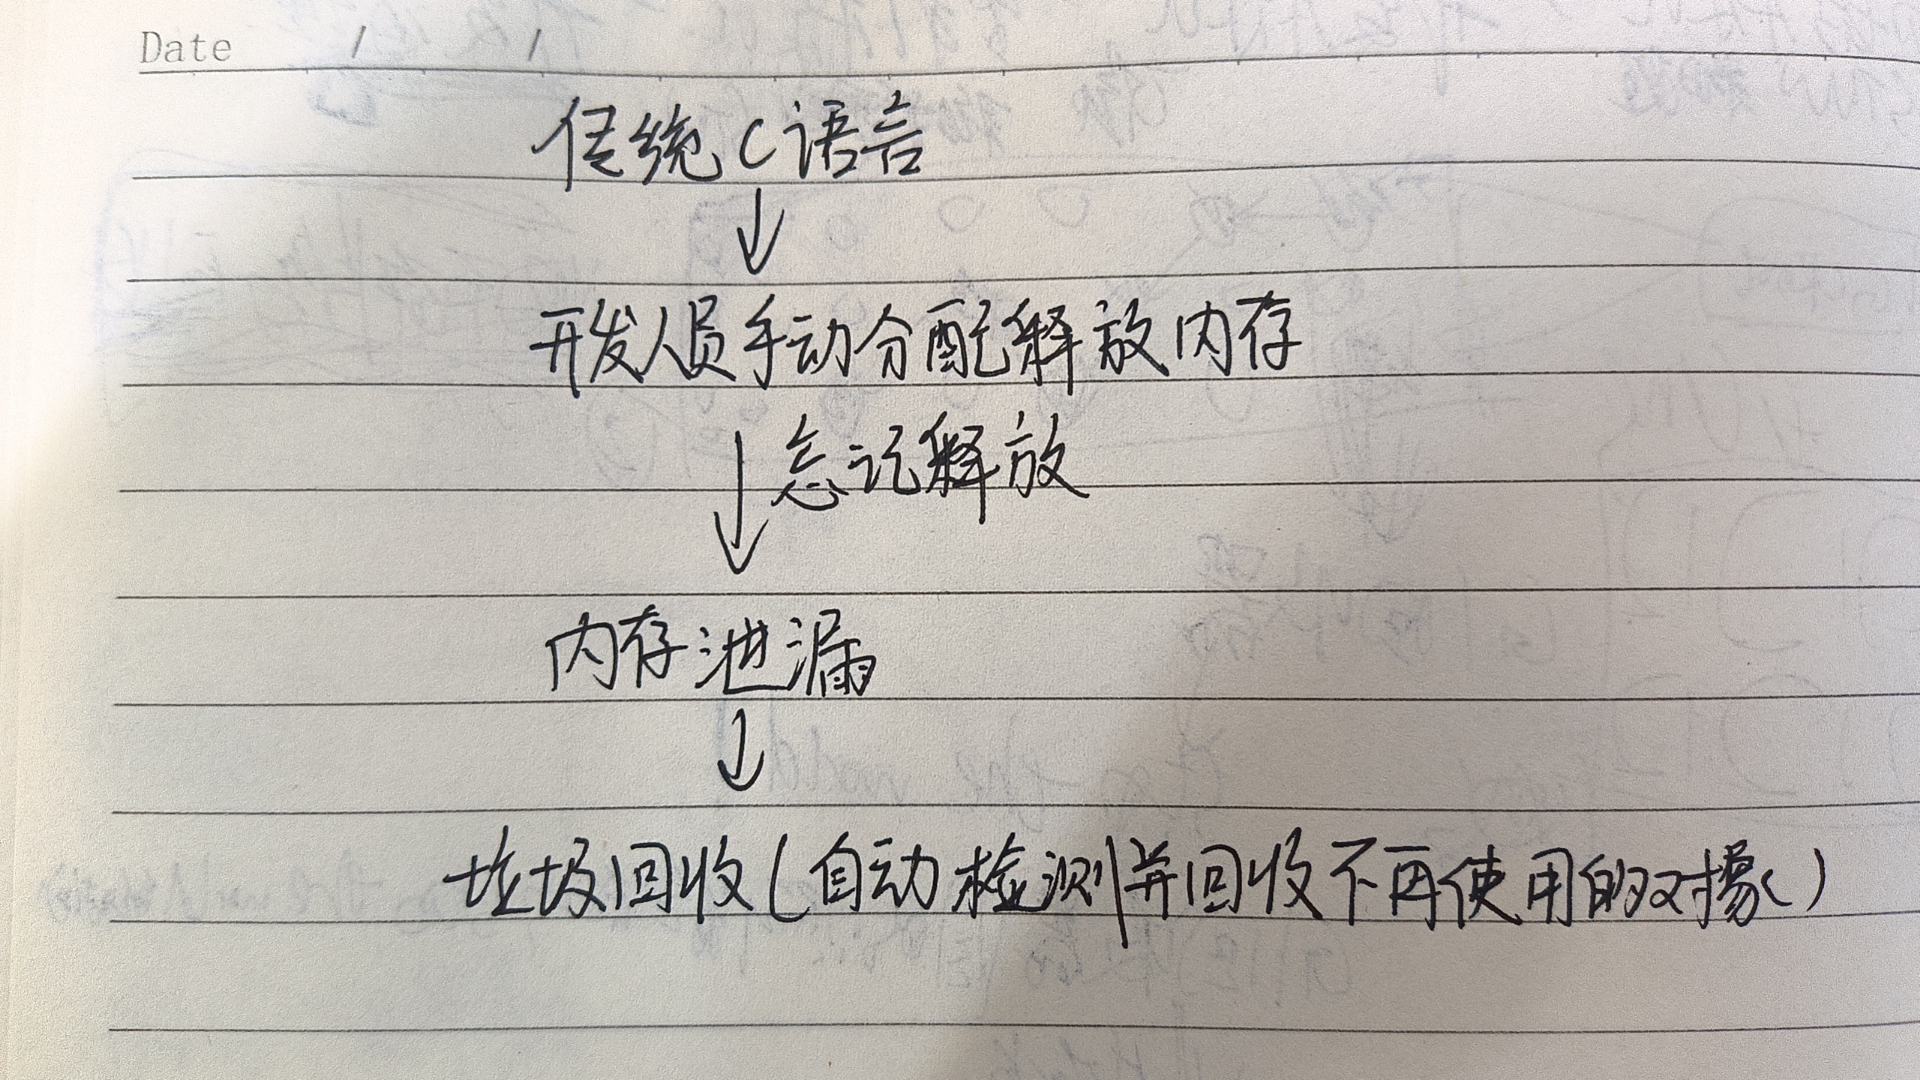 Date / /
传统C语言
↓
开发人员手动分配释放内存
↓ 忘记释放
内存泄漏
↓
垃圾回收(自动检测并回收不再使用的对象)